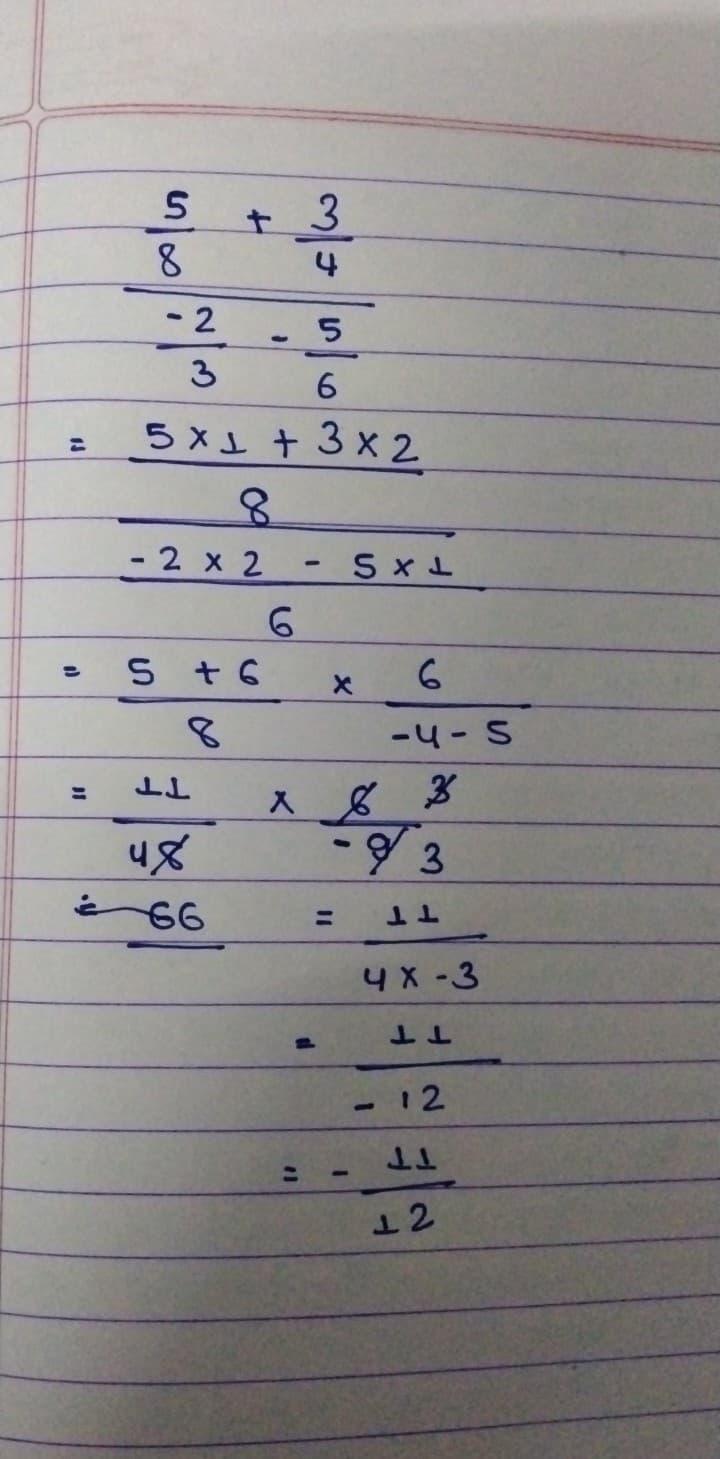 5/8 + 3/4
-2/3 - 5/6
= 5 x 1 + 3 x 2
8
-2 x 2 - 5 x 1
6
= 5 + 6 / 8 x 6 / -4 - 5
= 11 / 4 8 x 6 3 / -9 3
= 66 = 11 / 4 x -3
= 11 / -12
= - 11 / 12